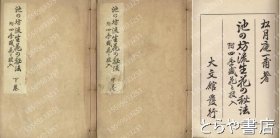 松月庵一甫著
池の坊流生花の秘法
附四季盛花と投入
大文館發行
池の坊流生花の秘法
附四季盛花と投入
上巻
池の坊流生花の秘法
附四季盛花と投入
下巻
とらや書房